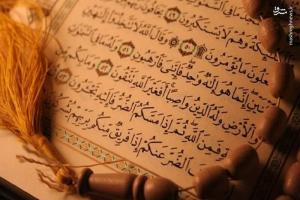 وَهُمْ لَا يَسْتَكْبِرُونَ
مَا يُؤْمَرُونَ ۩ وَقَالَ اللَّهُ لَا تَتَّخِذُوا
إِنَّمَا هُوَ إِلَٰهٌ وَاحِدٌ فَإِيَّايَ فَارْهَبُونِ
وَالْأَرْضِ وَلَهُ الدِّينُ وَاصِبًا أَفَغَيْرَ اللَّهِ تَتَّقُونَ وَمَا بِكُم
فَمِنَ اللَّهِ ثُمَّ إِذَا مَسَّكُمُ الضُّرُّ فَإِلَيْهِ
الضُّرَّ عَنكُمْ إِذَا فَرِيقٌ مِّنكُم بِرَبِّهِمْ